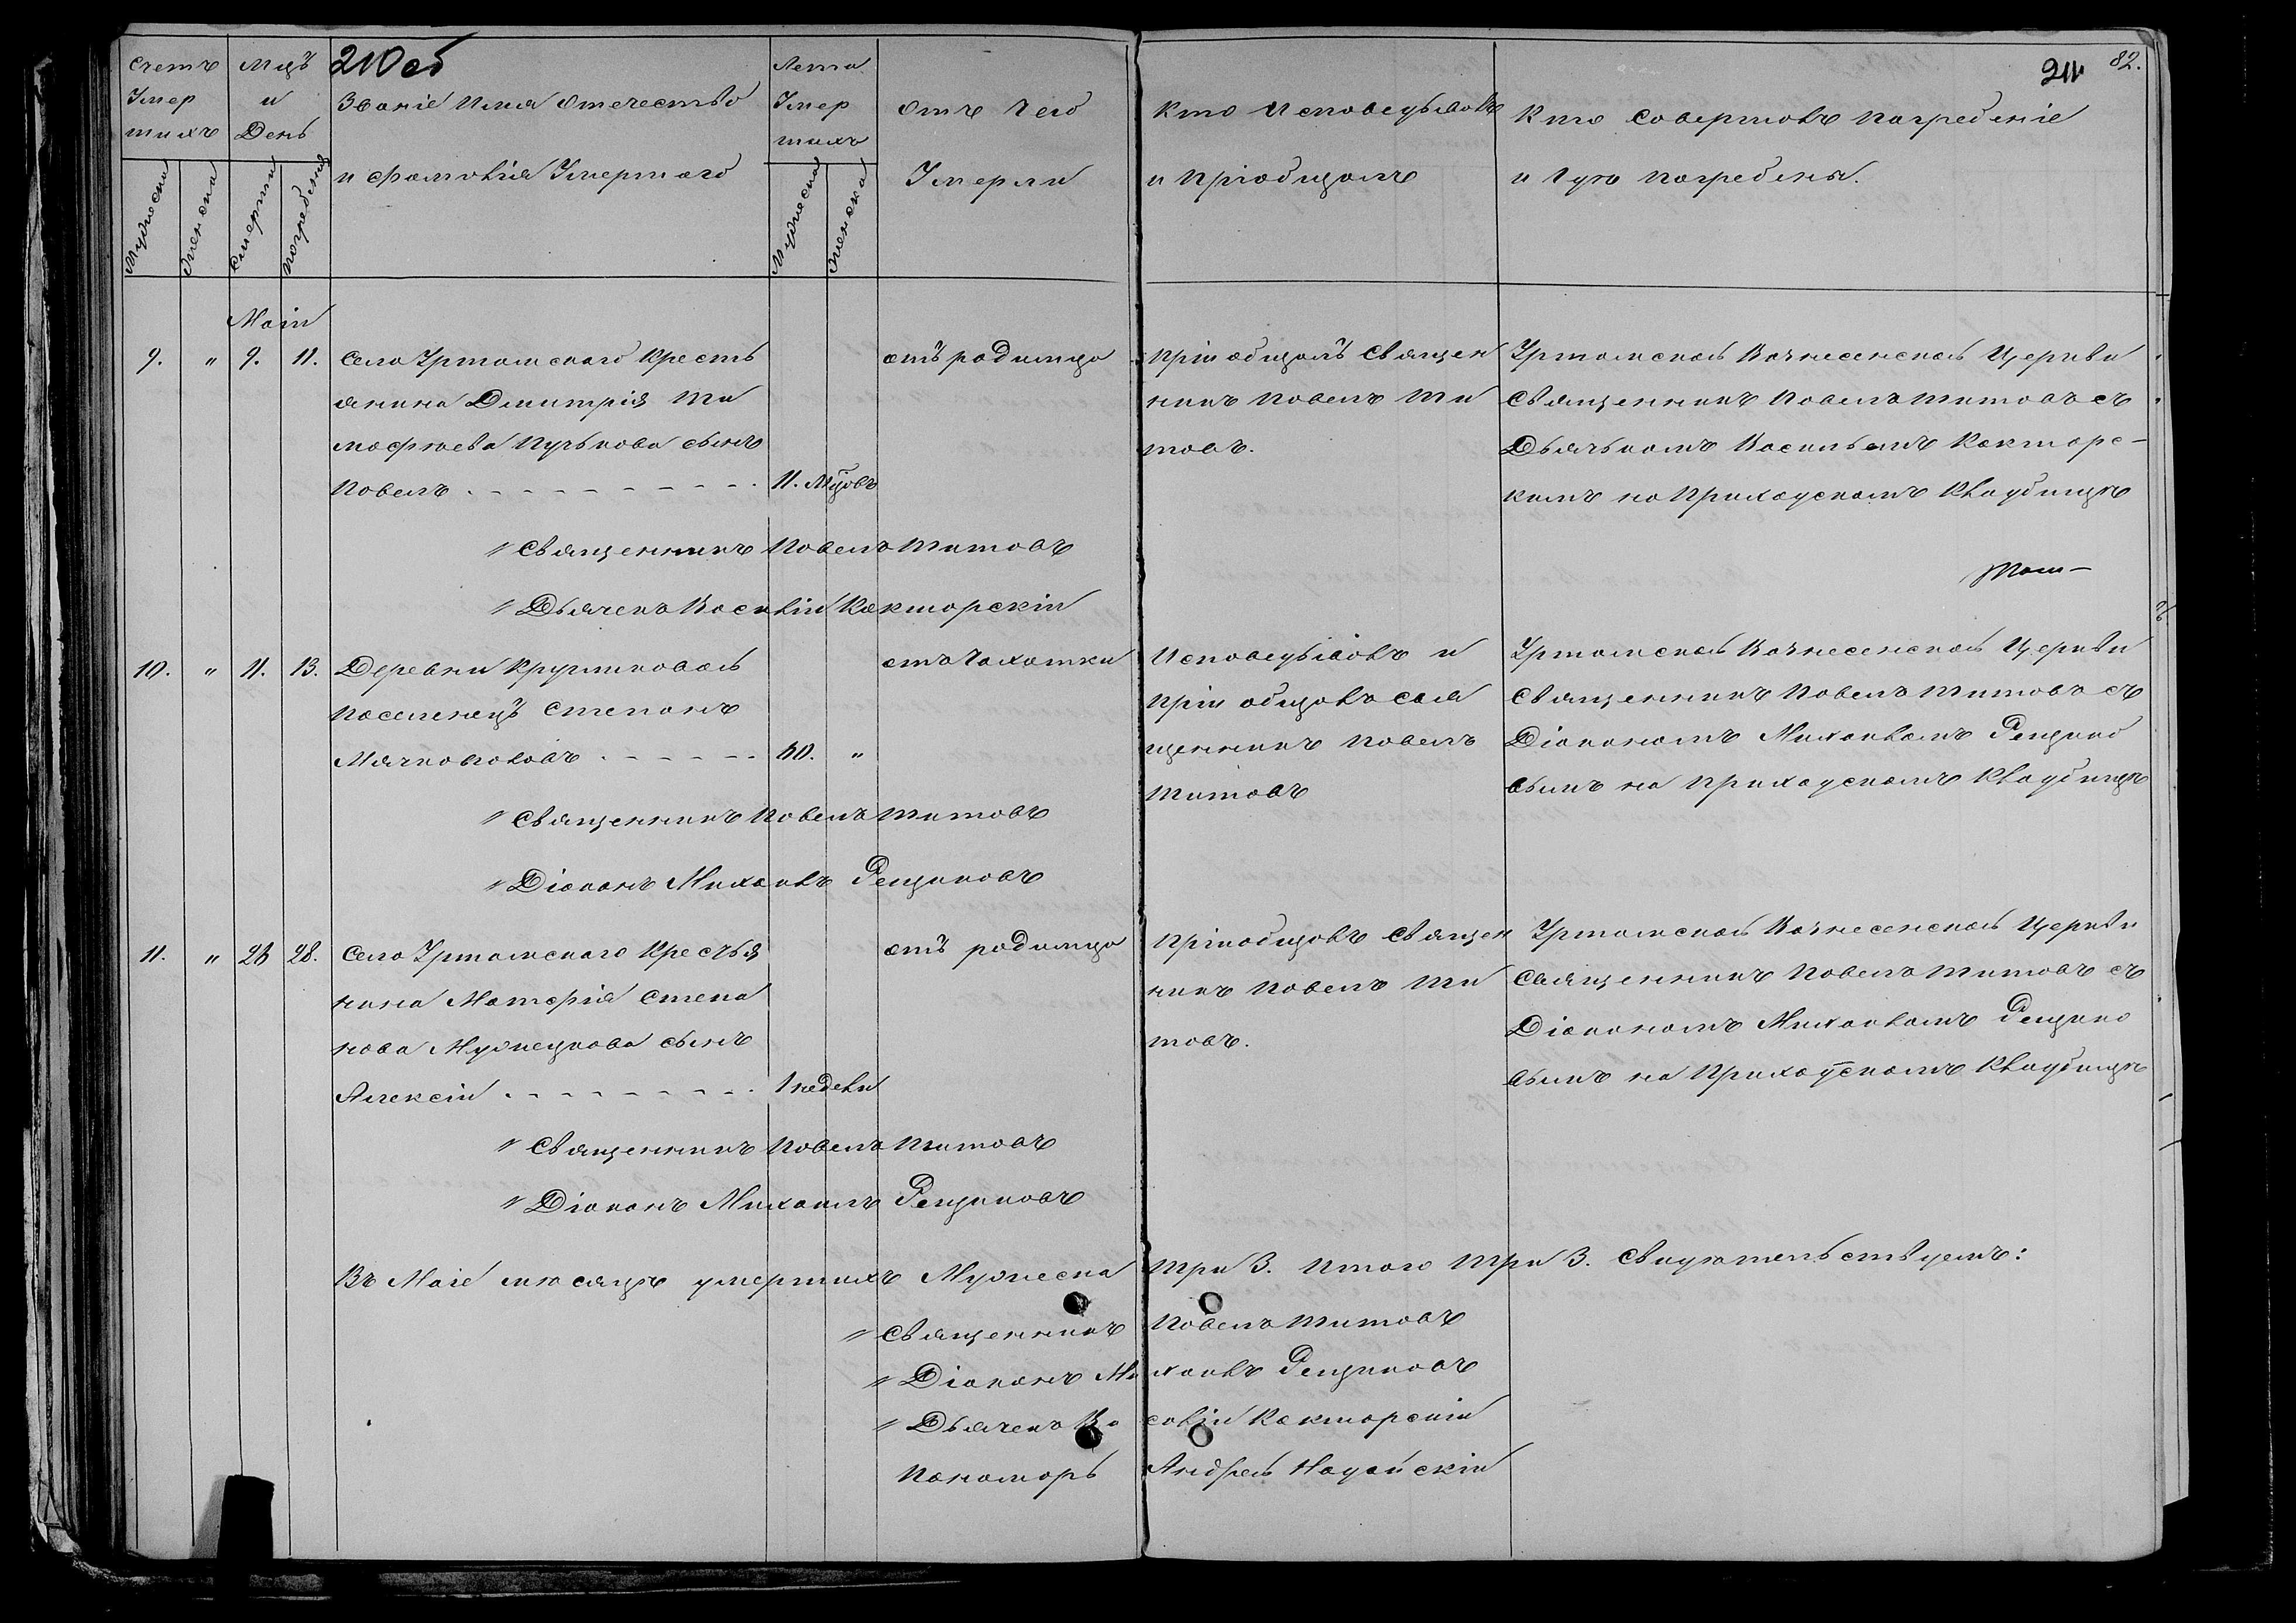 210 об
211
82.
Счетъ
Умер
шихъ
Мцъ
и
День
Званіе Имя Отечество
и Фамилія Умершаго
Лета
Умер
шихъ
Отъ чего
Умерли
Кто Исповедывалъ
и Пріобщалъ
Кто Совершалъ Погребеніе
и Гдѣ Погребены.
Мужеска
Женска
Смерти
Погребенія
Мужеска
Женска
Маіи
9. " 9. 11. Села Уртамскаго Кресть
янина Димитрія Ти
мофѣева Пучькова сынъ
Павелъ 11. Мцовъ
отъ родимца
Пріобщалъ Священ
никъ Павелъ Ти
товъ.
Уртамской Вознесенской Церкви
Священникъ Павелъ Титовъ съ
Дьячькомъ Васильемъ Кокшарс-
кимъ на Приходскомъ Кладбищѣ
" Священникъ Павелъ Титовъ
" Дьячекъ Василій Кокшарскій
10. " 11. 13. Деревни Кругликовой
Поселенецъ Степанъ
60. "
отъ Чахотки
Исповедывалъ и
Пріобщалъ Свя
щенникъ Павелъ
Титовъ
Уртамской Вознесенской Церкви
Священникъ Павелъ Титовъ съ
Діакономъ Михаиломъ Рещико
вымъ на Приходскомъ Кладбищѣ
" Священникъ Павелъ Титовъ
" Діаконъ Михаилъ Рещиковъ
11. " 26 28. Села Уртамскаго Кресьтья
нина Матфія Степа
нова Мужецкова сынъ
Алексій 1 недели
отъ родимца
Пріобщалъ Священ
никъ Павелъ Ти
товъ.
Уртамской Вознесенской Церкви
Священникъ Павелъ Титовъ съ
Діакономъ Михаиломъ Рещико
вымъ на Приходскомъ Кладбищѣ
" Священникъ Павелъ Титовъ
" Діаконъ Михаилъ Рещиковъ
Въ Маіе месяцѣ умершихъ Мужеска Три 3. Итого Три 3. Свидѣтельствуемъ:
" Священникъ Павелъ Титовъ
" Діаконъ Михаилъ Рещиковъ
" Дьячекъ Василій Кокшарскій
Пономарь Андрей